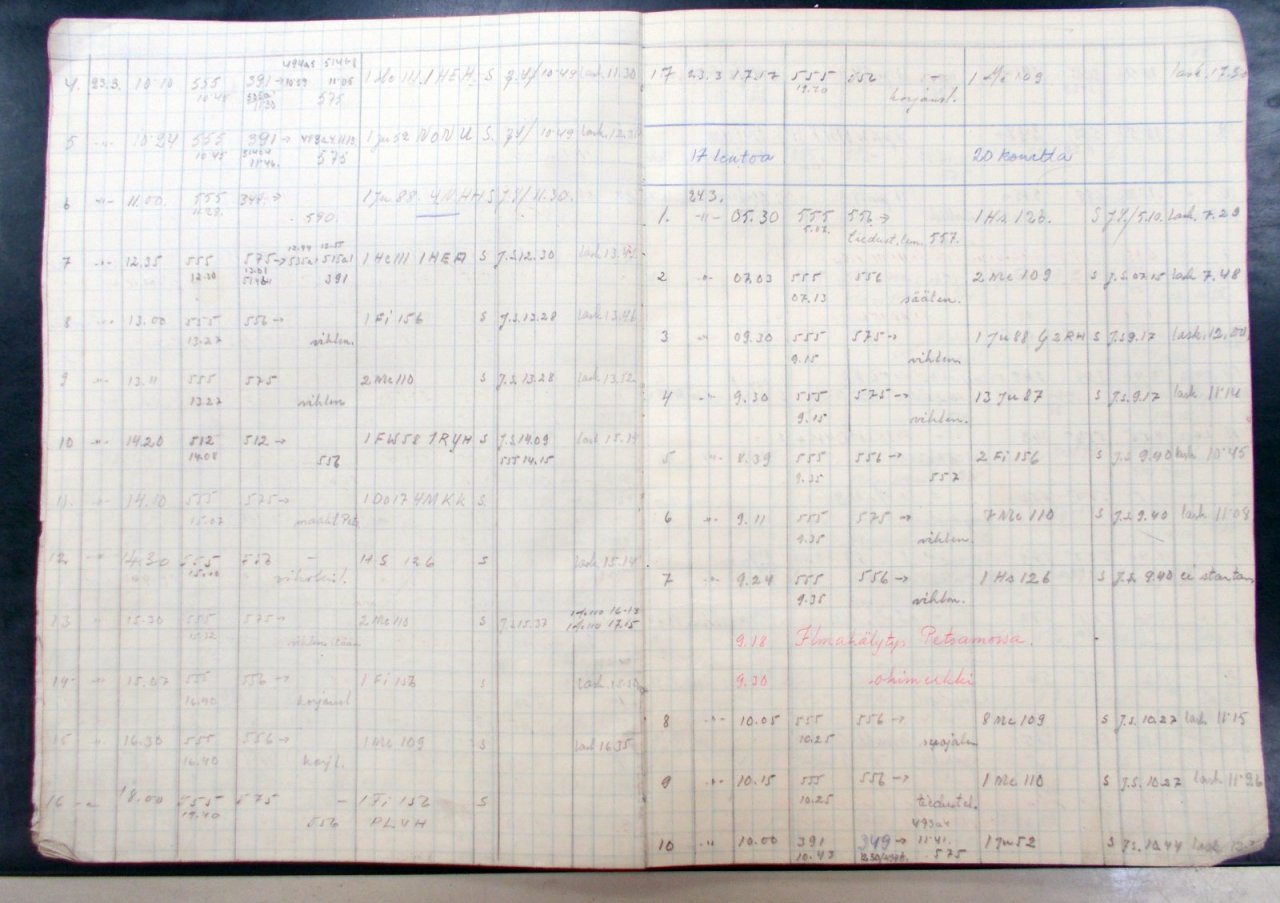 494a5 514b8
4. 23.3. 10.10 555 391→ 10.59 11.05 1 He 111. 1HEA. S J.Y./10.49 Lask. 11.30
10.48 575
5 -"- 10.24 555 391→ 1 Ju 52 NONU S. J.Y/ 10.49 Lask.
10.45 11.46. 575
6 -"- 11.00 555 344→ 1 Ju 88. 4N.HH S J.Y/ 11.30.
11.28. 590.
12.44 12.55
7 -"- 12.35 555 575→ 535a1 515a1 1 He 111 1HEA S J.S. 12.30 Lask 13.42
12.30 12.01 514b1 391
8 -"- 13.00 555 556→ 1 Fi 156 S J.S. 13.28 Lask. 13.46
13.27 vihlen.
9 -"- 13.11 555 575 2 Me 110 S J.S. 13.28 Lask 13.52
13.27 vihlen
10 -"- 14.20 512 512→ 1 FW 58 TRYH S J.S. 14.09 Lask 15.15
14.08 556 555 14.15
11. -"- 14.10 555 575→ 1 Do 17 4MKK S.
15.07
12. -"- 14.30 555 556 - HS 126 S Lask 15.14
13 -"- 15.30 555 575→ 2 Me 110 S J.S. 15.37 16.13
15.32 vihlen 17.15
14 -"- 15.07 555 556→ 1 Fi 156 S Lask 15.50
16.40 korjaust
15 -"- 16.30 555 556→ 1 Me 109 S Lask 16.35
16.40 korjl.
16 -"- 18.00 555 575 - 1 Fi 156 S
19.40 556 PL4H
17 23.3 17.17 555 556 - 1 Me 109 Lask. 17.30
19.20 korjaust.
17 lentoa 20 konetta
24.3.
1. -"- 05.30 555 556→ 1 Hs 126. S J.Y./5.10. Lask. 7.29
5.07. tiedust.len. 557.
2 -"- 07.03 555 556 2 Me 109 S J.S. 07.15 Lask 7.48
07.13 säälen.
3 -"- 09.30 555 575→ 1 Ju 88 G2RH S J.S. 9.17 Lask. 12.00
9.15 vihlen.
4 -"- 9.30 555 575→ 13 Ju 87 S J.S. 9.17 Lask 11.14
9.15 vihlen.
5 -"- 8.39 555 556→ 2 Fi 156 S J.S 9.40 Lask 10.45
9.35 557
6 -"- 9.11 555 575→ 7 Me 110 S J.S. 9.40 Lask 11.08
9.35 vihlen
7 -"- 9.24 555 556→ 1 Hs 126 S J.S. 9.40 ei startan
9.35 vihlen.
9.18 Ilmahälytys Petsamossa.
9.30 ohimerkki
8 -"- 10.05 555 556→ 8 Me 109 S J.S. 10.27 Lask 11.15
10.25 suojalen
9 -"- 10.15 555 556→ 1 Me 110 S J.S. 10.27 Lask 11.26
10.25 tiedustel.
493a4
10 -"- 10.00 391 349→ 11.41. 1 Ju 52 S J.S. 10.44 Lask
10.43 575